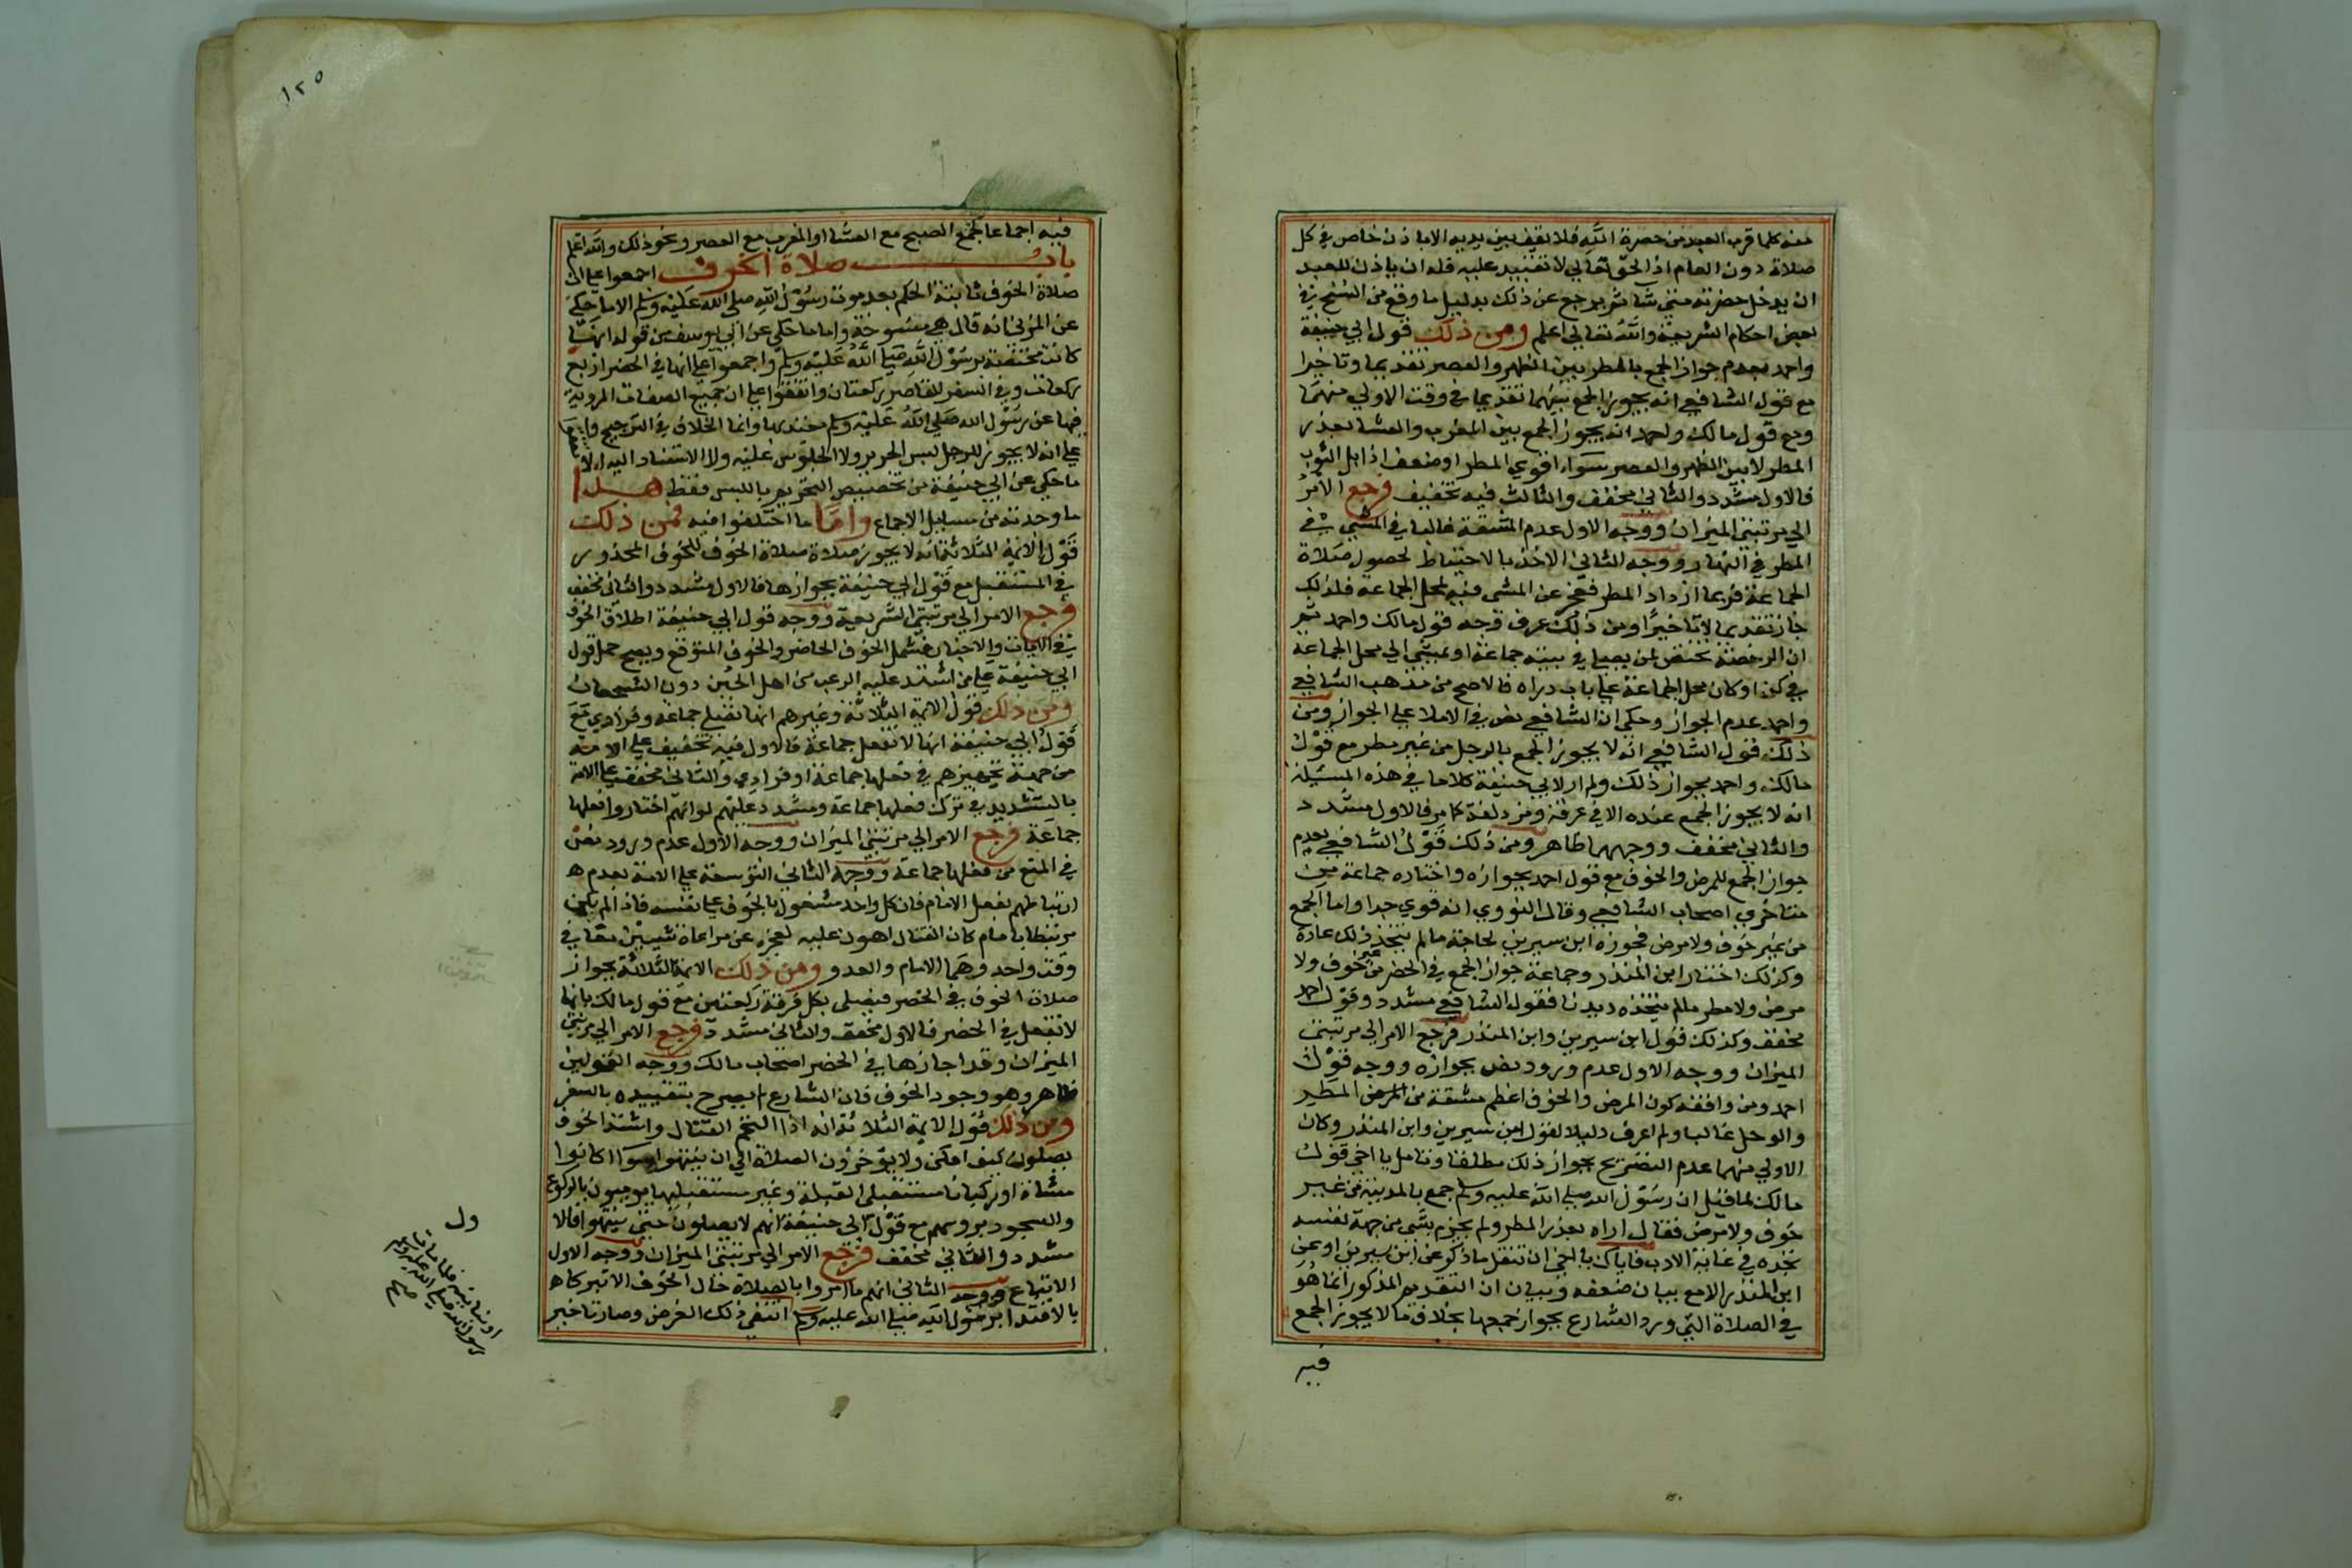 منه كلما قرب العبد من حضرة الله فلا يقف بين يديه الا باذن خاص في كل
صلاة دون العام اذ الحق تعالي لا تقييد عليه فله ان ياذن للعبد
ان يدخل حضرته متي شا ثم يرجع عن ذلك بدليل ما وقع من النسخ في
بعض احكام الشريعة والله تعالي اعلم ومن ذلك قول ابي حنيفة
واحمد بعدم جواز الجمع بالمطر بين الظهر والعصر تقديما وتاخيرا
مع قول الشافعي انه يجوز الجمع بينهما تقديما في وقت الاولي منهما
ومع قول مالك واحمد انه يجوز الجمع بين المغرب والعشا بعذر
المطر لا بين الظهر والعصر سواء اقوي المطر او ضعف اذا بل الثوب
فالاول مشدد والثاني مخفف والثالث فيه تخفيف فرجع الامر
الي مرتبتي الميزان ووجه الاول عدم المشقة غالبا في المشي في
المطر في النهار ووجه الثاني الاخذ بالاحتياط لحصول صلاة
الجماعة فربما ازداد المطر فعجز عن المشي فيه لمحل الجماعة فلذلك
جاز تقديما لا تاخيرا ومن ذلك عرف وجه قول مالك واحمد ثم
ان الرخصة تختص لمن يصلي في بيته جماعة او يمشي الي محل الجماعة
في كن او كان محل الجماعة علي باب داره فالاصح من مذهب الشافعي
واحمد عدم الجواز وحكي ان الشافعي نص في الاملا علي الجواز ومن
ذلك قول الشافعي انه لا يجوز الجمع بالوحل من غير مطر مع قول
مالك واحمد بجواز ذلك ولم ار لابي حنيفة كلاما في هذه المسئلة
انه لا يجوز الجمع عنده الا في عرفة ومزدلفة كما مر فالاول مشدد
والثاني مخفف ووجههما ظاهر ومن ذلك قول الشافعي بعدم
جواز الجمع للمرض والخوف مع قول احمد بجوازه واختاره جماعة من
متاخري اصحاب الشافعي وقال النووي انه قوي جدا واما الجمع
من غير خوف ولا مرض فجوزه ابن سيرين لحاجة ما لم يتخذ ذلك عادة
وكذلك اختار ابن المنذر وجماعة جواز الجمع في الحضر من غير خوف ولا
مرض ولا مطر ما لم يتخذه ديدنا فقول الشافعي مشدد وقول احمد
مخفف وكذلك قول ابن سيرين وابن المنذر فرجع الامر الي مرتبتي
الميزان ووجه الاول عدم ورود نص بجوازه ووجه قول
احمد ومن وافقه كون المرض والخوف اعظم مشقة من المرض المطير
والوحل غالبا ولم اعرف دليلا لقول ابن سيرين وابن المنذر وكان
الاولي منهما عدم التصريح بجواز ذلك مطلقا وتامل يا اخي قول
مالك لما قيل ان رسول الله صلي الله عليه وسلم جمع بالمدينة من غير
خوف ولا مرض فقال اراه بعذر المطر ولم يجزم بشي من جهة نفسه
تجده في غاية الادب فاياك يا اخي ان تنقل ما ذكر عن ابن سيرين او عن
ابن المنذر الا مع بيان ضعفه وبيان ان التقديم المذكور انما هو
في الصلاة التي ورد الشارع بجواز جمعها بخلاف ما لا يجوز الجمع
فيه
١٢٥
فيه اجماعا كجمع الصبح مع العشا او المغرب مع العصر ونحو ذلك والله اعلم
باب صلاة الخوف اجمعوا علي ان
صلاة الخوف ثابتة الحكم بعد موت رسول الله صلي الله عليه وسلم الا ما حكي
عن المزني انه قال هي منسوخة واما ما حكي عن ابي يوسف من قوله انها
كانت مختصة برسول الله صلي الله عليه وسلم واجمعوا علي انها في الحضر اربع
ركعات وفي السفر للقاصر ركعتان واتفقوا علي ان جميع الصفات المروية
فيها عن رسول الله صلي الله عليه وسلم معتد بها وانما الخلاف في الترجيح واتفقوا
علي انه لا يجوز للرجل لبس الحرير ولا الجلوس عليه ولا الاستناد اليه الا
ما حكي عن ابي حنيفة من تخصيص التحريم باللبس فقط هذا
ما وجدته من مسايل الاجماع واما ما اختلفوا فيه فمن ذلك
قول الايمة الثلاثة انه لا يجوز صلاة صلاة الخوف للخوف المحذور
في المستقبل مع قول ابي حنيفة بجوازها فالاول مشدد والثاني مخفف
فرجع الامر الي مرتبتي الشريعة ووجه قول ابي حنيفة اطلاق الخوف
في الايات والاخبار فشمل الخوف الحاضر والخوف المتوقع ويصح حمل قول
ابي حنيفة علي من اشتد عليه الرعب من اهل الجبن دون الشجعان
ومن ذلك قول الايمة الثلاثة وغيرهم انها تصلي جماعة وفرادي مع
قول ابي حنيفة انها لا تفعل جماعة فالاول فيه تخفيف علي الامة
من جهة تخييرهم في فعلها جماعة او فرادي والثاني مخفف علي الامة
بالتشديد في ترك فعلها جماعة ومشدد عليهم لو انهم اختاروا فعلها
جماعة فرجع الامر الي مرتبتي الميزان ووجه الاول عدم ورود نص
في المنع من فعلها جماعة ووجه الثاني التوسعة علي الامة بعدم
ارتباطهم بفعل الامام فان كل واحد مشغول بالخوف علي نفسه فاذا لم يكن
مرتبطا بامام كان القتال اهون عليه لعجزه عن مراعاة شيين معا في
وقت واحد وهما الامام والعدو ومن ذلك الايمة الثلاثة بجواز
صلاة الخوف في الحضر فيصلي بكل فرقة ركعتين مع قول مالك بانها
لا تفعل في الحضر فالاول مخفف والثاني مشدد فرجع الامر الي مرتبتي
الميزان وقد اجازها في الحضر اصحاب مالك ووجه القولين
ظاهر وهو وجود الخوف فان الشارع لم يصرح بتقييده بالسفر
ومن ذلك قول الايمة الثلاثة انه اذا التحم القتال واشتد الخوف
يصلون كيف امكن ولا يوخرون الصلاة الي ان ينتهوا سوا كانوا
مشاة او ركبانا مستقبلي القبلة وغير مستقبليها يوميون بالركوع
والسجود بروسهم مع قول ابي حنيفة انهم لا يصلون حتي ينتهوا فالا
مشدد والثاني مخفف فرجع الامر الي مرتبتي الميزان ووجه الاول
الاتباع ووجه الثاني انهم ما امروا بالصلاة حال الخوف الا تبركا
بالاقتدا برسول الله صلي الله عليه وسلم انتفي ذلك الغرض وصار تاخير
ول
او نيابته فلما مات
رسول الله صلي الله عليه وسلم
صح